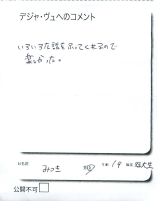 デジャ・ヴュへのコメント
いろいろな話をふってくれるので
楽しかった。
お名前 みつき 年齢 19 職業 短大生
公開不可